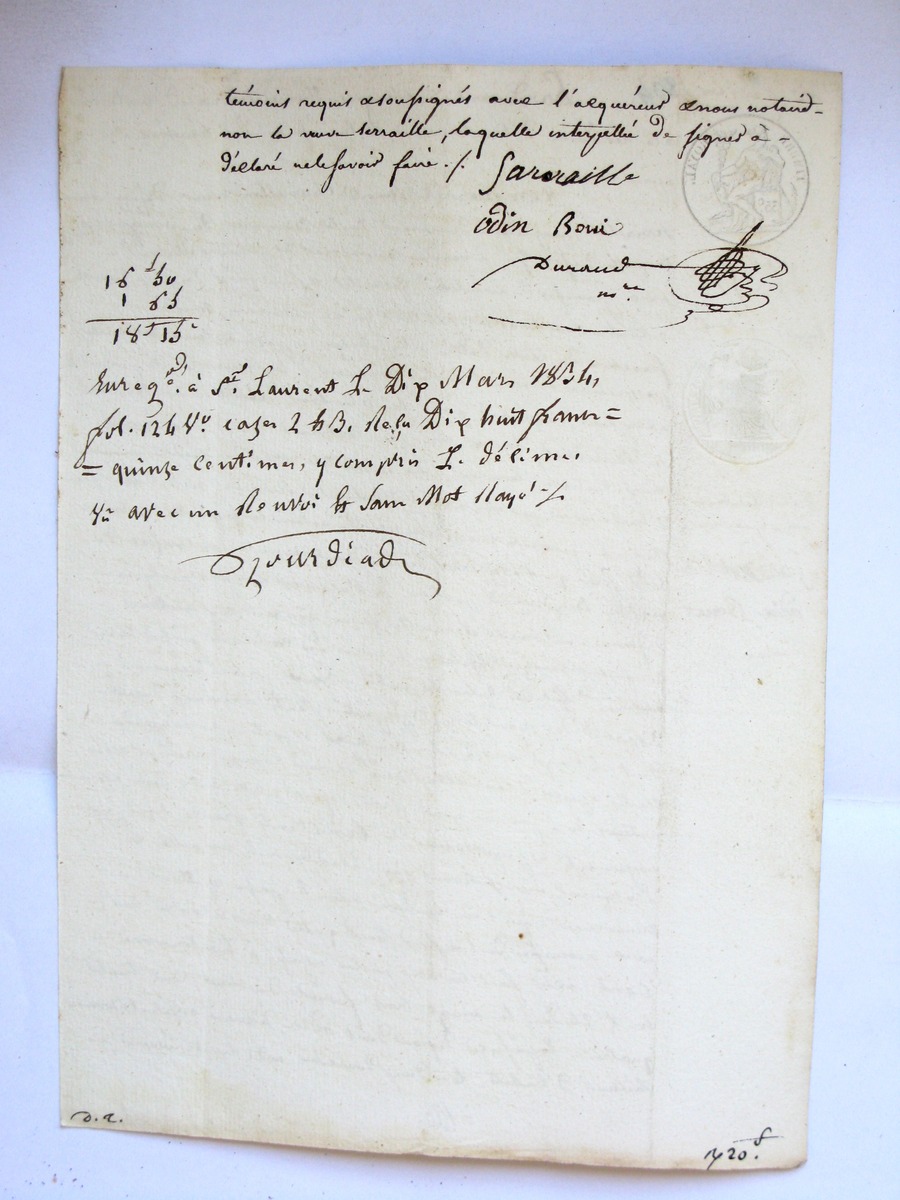 témoins requis & soussignés avec l'acquéreur & nous notaire
non la veuve Serraille, laquelle interpellée de signer à
déclaré ne le savoir faire ./.
Sarraille
odin Boni
Durand
nre
16 f 50
1 65
18 f 15 c
Enregé. à St. Laurent Le Dix Mars 1854,
fol. 124 Vo. cases 2 & 3, Reçu Dix huit francs =
= quinze Centimes, y compris Le décime,
Vu avec un Renvoi Et Sans Mot Rayé ./.
D. a.
20. f